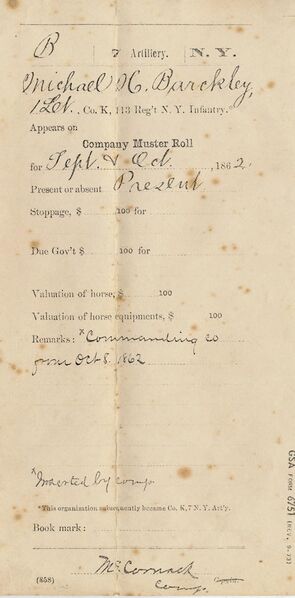 B | 7 Artillery. | N. Y.
Michael H. Barckley,
1 Lt., Co. K, 113 Reg't N. Y. Infantry.*
Appears on
Company Muster Roll
for Sept. & Oct., 1862.
Present or absent Present
Stoppage, $ 100 for
Due Gov't $ 100 for
Valuation of horse, $ 100
Valuation of horse equipments, $ 100
Remarks: x Commanding Co
from Oct 8. 1862
x Inserted by comp.
*This organization subsequently became Co. K, 7 N. Y. Art'y.
Book mark:
McCormack
(858) Comp. Copyist.
GSA FORM 6751 (REV. 9-73)